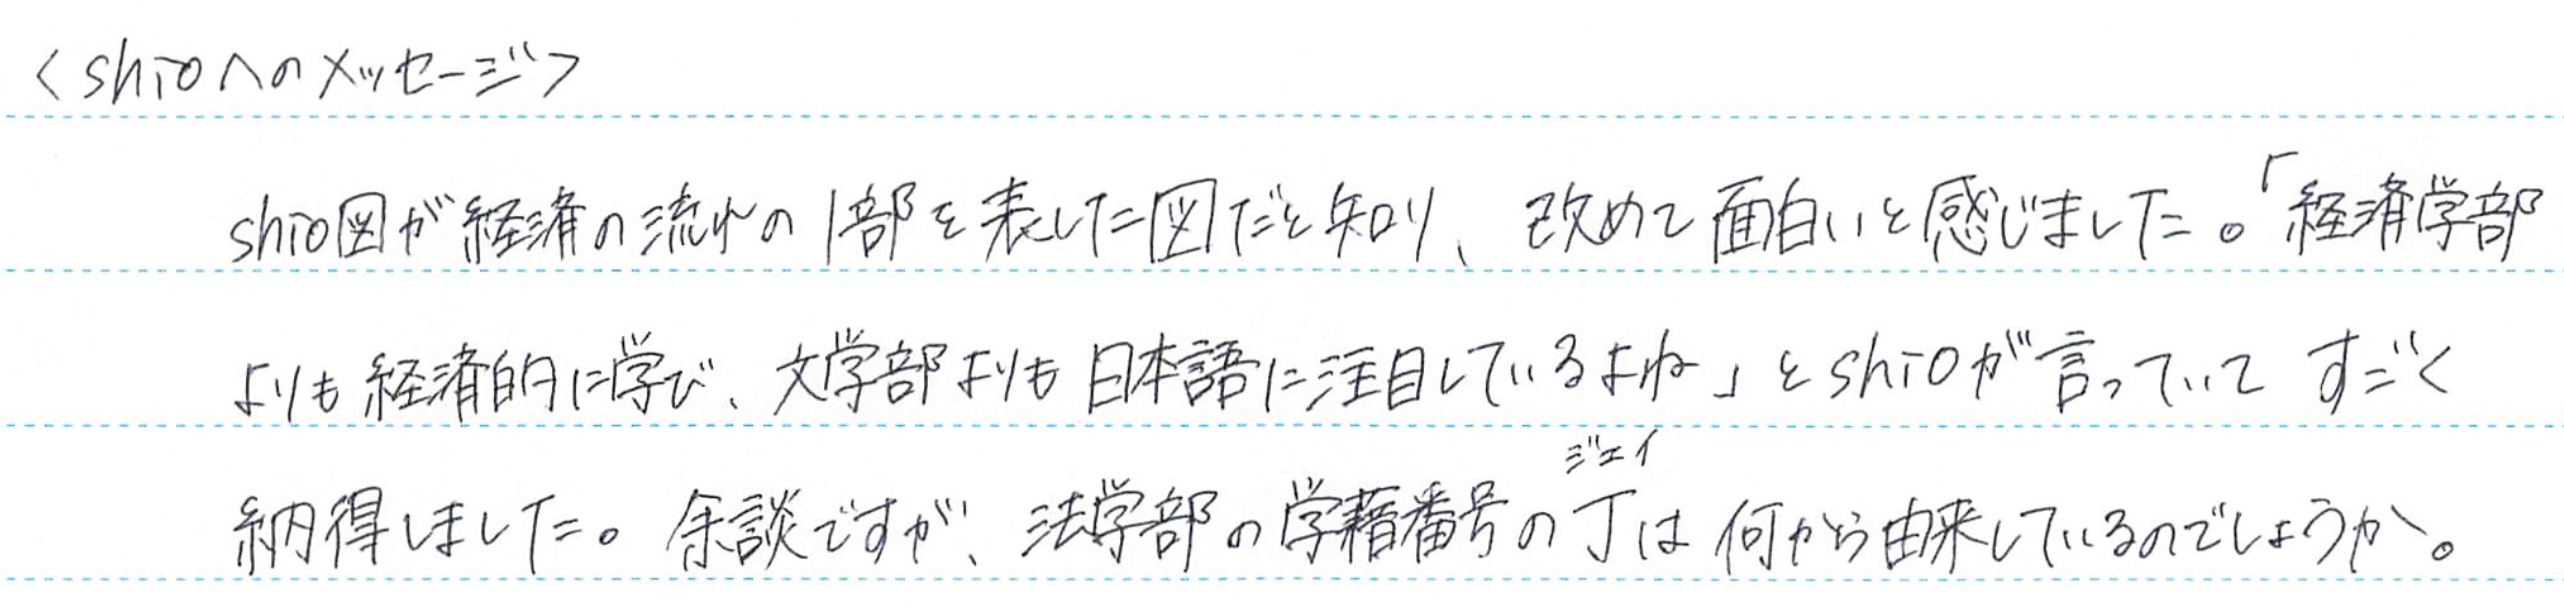 <shioへのメッセージ>
shio図が経済の流れの1部を表した図だと知り、改めて面白いと感じました。「経済学部
よりも経済的に学び、文学部よりも日本語に注目しているよね」とshioが言っていて すごく
ジェイ
納得しました。余談ですが、法学部の学籍番号のJは何から由来しているのでしょうか。